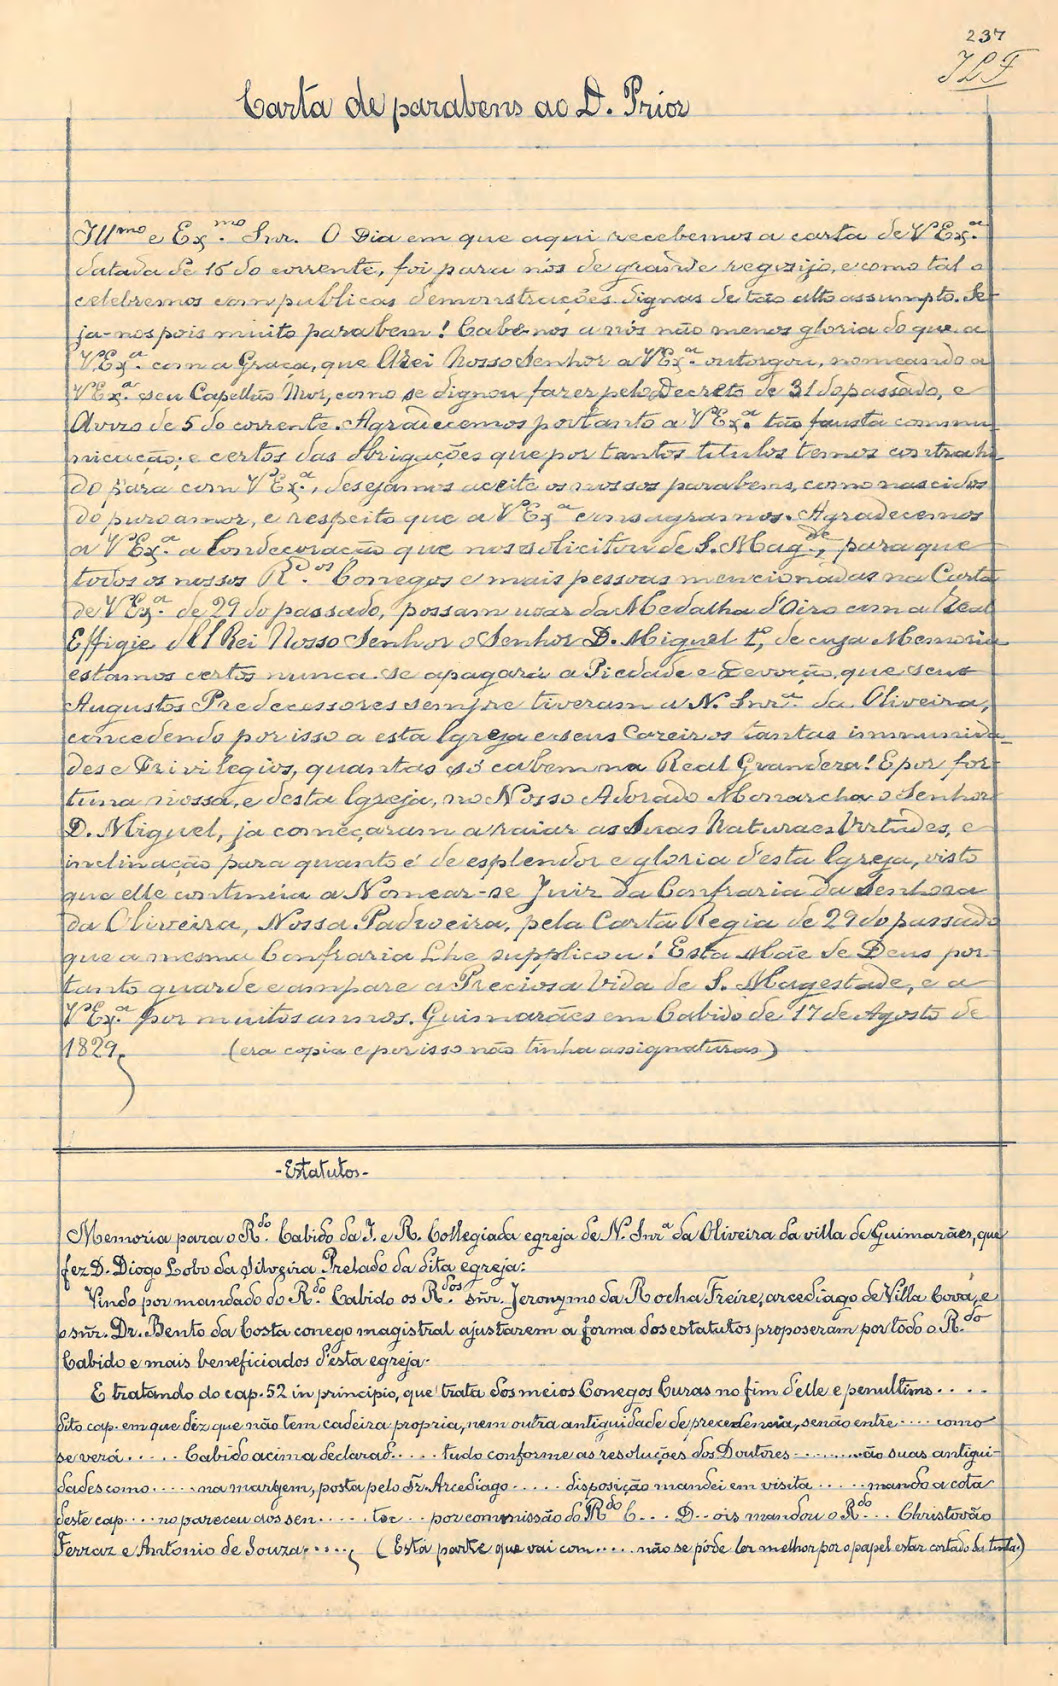 237
JLF
Carta de parabens ao D. Prior
Ill.mo e Ex.mo Snr. O Dia em que aqui recebemos a carta de V Ex.a
datada de 16 do corrente, foi para nós de grande regosijo, e como tal o
celebremos com publicas demonstrações dignas de tão alto assumpto. Se-
ja-nos pois muito parabem! Cabe-nos a nós não menos gloria do que a
V Ex.a com a Graça, que Al Rei Nosso Senhor a V Ex.a outorgou, nomeando a
V Ex.a seu Capellão Mor, como se dignou fazer pelo Decreto de 31 do passado, e
Avizo de 5 do corrente. Agradecemos portanto a V Ex.a tão fausta commu-
nicação; e certos das obrigações que por tantos titulos temos contrahi-
do para com V Ex.a, desejamos aceite os nossos parabens, como nascidos
do puro amor, e respeito que a V Ex.a consagramos. Agradecemos
a V Ex.a a Condecoração que nos solicitou de S. Mag.de, para que
todos os nossos R.dos Conegos e mais pessoas mencionadas na Carta
de V Ex.a de 29 do passado, possam uzar da Medalha d'Oiro com a Real
Effigie d'El Rei Nosso Senhor o Senhor D. Miguel 1º, de cuja Memoria
estamos certos nunca se apagará a Piedade e Devoção, que seus
Augustos Predecessores sempre tiveram a N. Snr.a da Oliveira,
concedendo por isso a esta Igreja e seus Cazeiros tantas immunida-
des e Privilegios, quantas só cabem na Real Grandeza! E por for-
tuna nossa, e desta Igreja, no Nosso Adorado Monarcha o Senhor
D. Miguel, ja começaram a raiar as Suas Naturaes Virtudes, e
inclinação para quanto é de esplendor e gloria d'esta Igreja, visto
que elle continúa a Nomear-se Juiz da Confraria da Senhora
da Oliveira, Nossa Padroeira, pela Carta Regia de 29 do passado
que a mesma Confraria Lhe supplicou! Esta Mãe de Deus por-
tanto guarde e ampare a Preciosa Vida de S. Magestade, e a
V Ex.a por muitos annos. Guimarães em Cabido de 17 de Agosto de
1829. (era copia e por isso não tinha assignaturas)
- Estatutos -
Memoria para o R.do Cabido da I. e R. Collegiada egreja de N. Snr.a da Oliveira da villa de Guimarães, que
fez D. Diogo Lobo da Silveira Prelado da dita egreja:
Vindo por mandado do R.do Cabido os R.dos sñr. Jeronymo da Rocha Freire, arcediago de Villa Cova, e
o sñr. Dr. Bento da Costa conego magistral ajustarem a forma dos estatutos proposeram por todo o R.do
Cabido e mais beneficiados d'esta egreja.
E tratando do cap. 52 in principio, que trata dos meios Conegos Curas no fim d'elle e penultimo....
dito cap. em que diz que não tem cadeira propria, nem outra antiguidade de precedencia, senão entre.... como
se verá..... Cabido acima declarad..... tudo conforme as resoluções dos Doutores .........ão suas antigui-
dades como..... na margem, posta pelo Sr. Arcediago..... disposição mandei em visita..... mando a cota
deste cap.... no pareceu aos sen..... ter... por commissão do R.do C... D..ois mandou o R.do... Christovão
Ferraz e Antonio de Souza....., (Esta parte que vai com.... não se póde ler melhor por o papel estar cortado da tinta.)